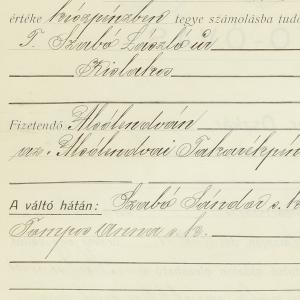 értéke készpénzben tegye számolásba tudó
T. Szabó László úr
Kislakos
Fizetendő Alsólendván
az Alsólendvai Takarékpén
A váltó hátán: Szabó Sándor s. k.
Tompos Anna s. k.